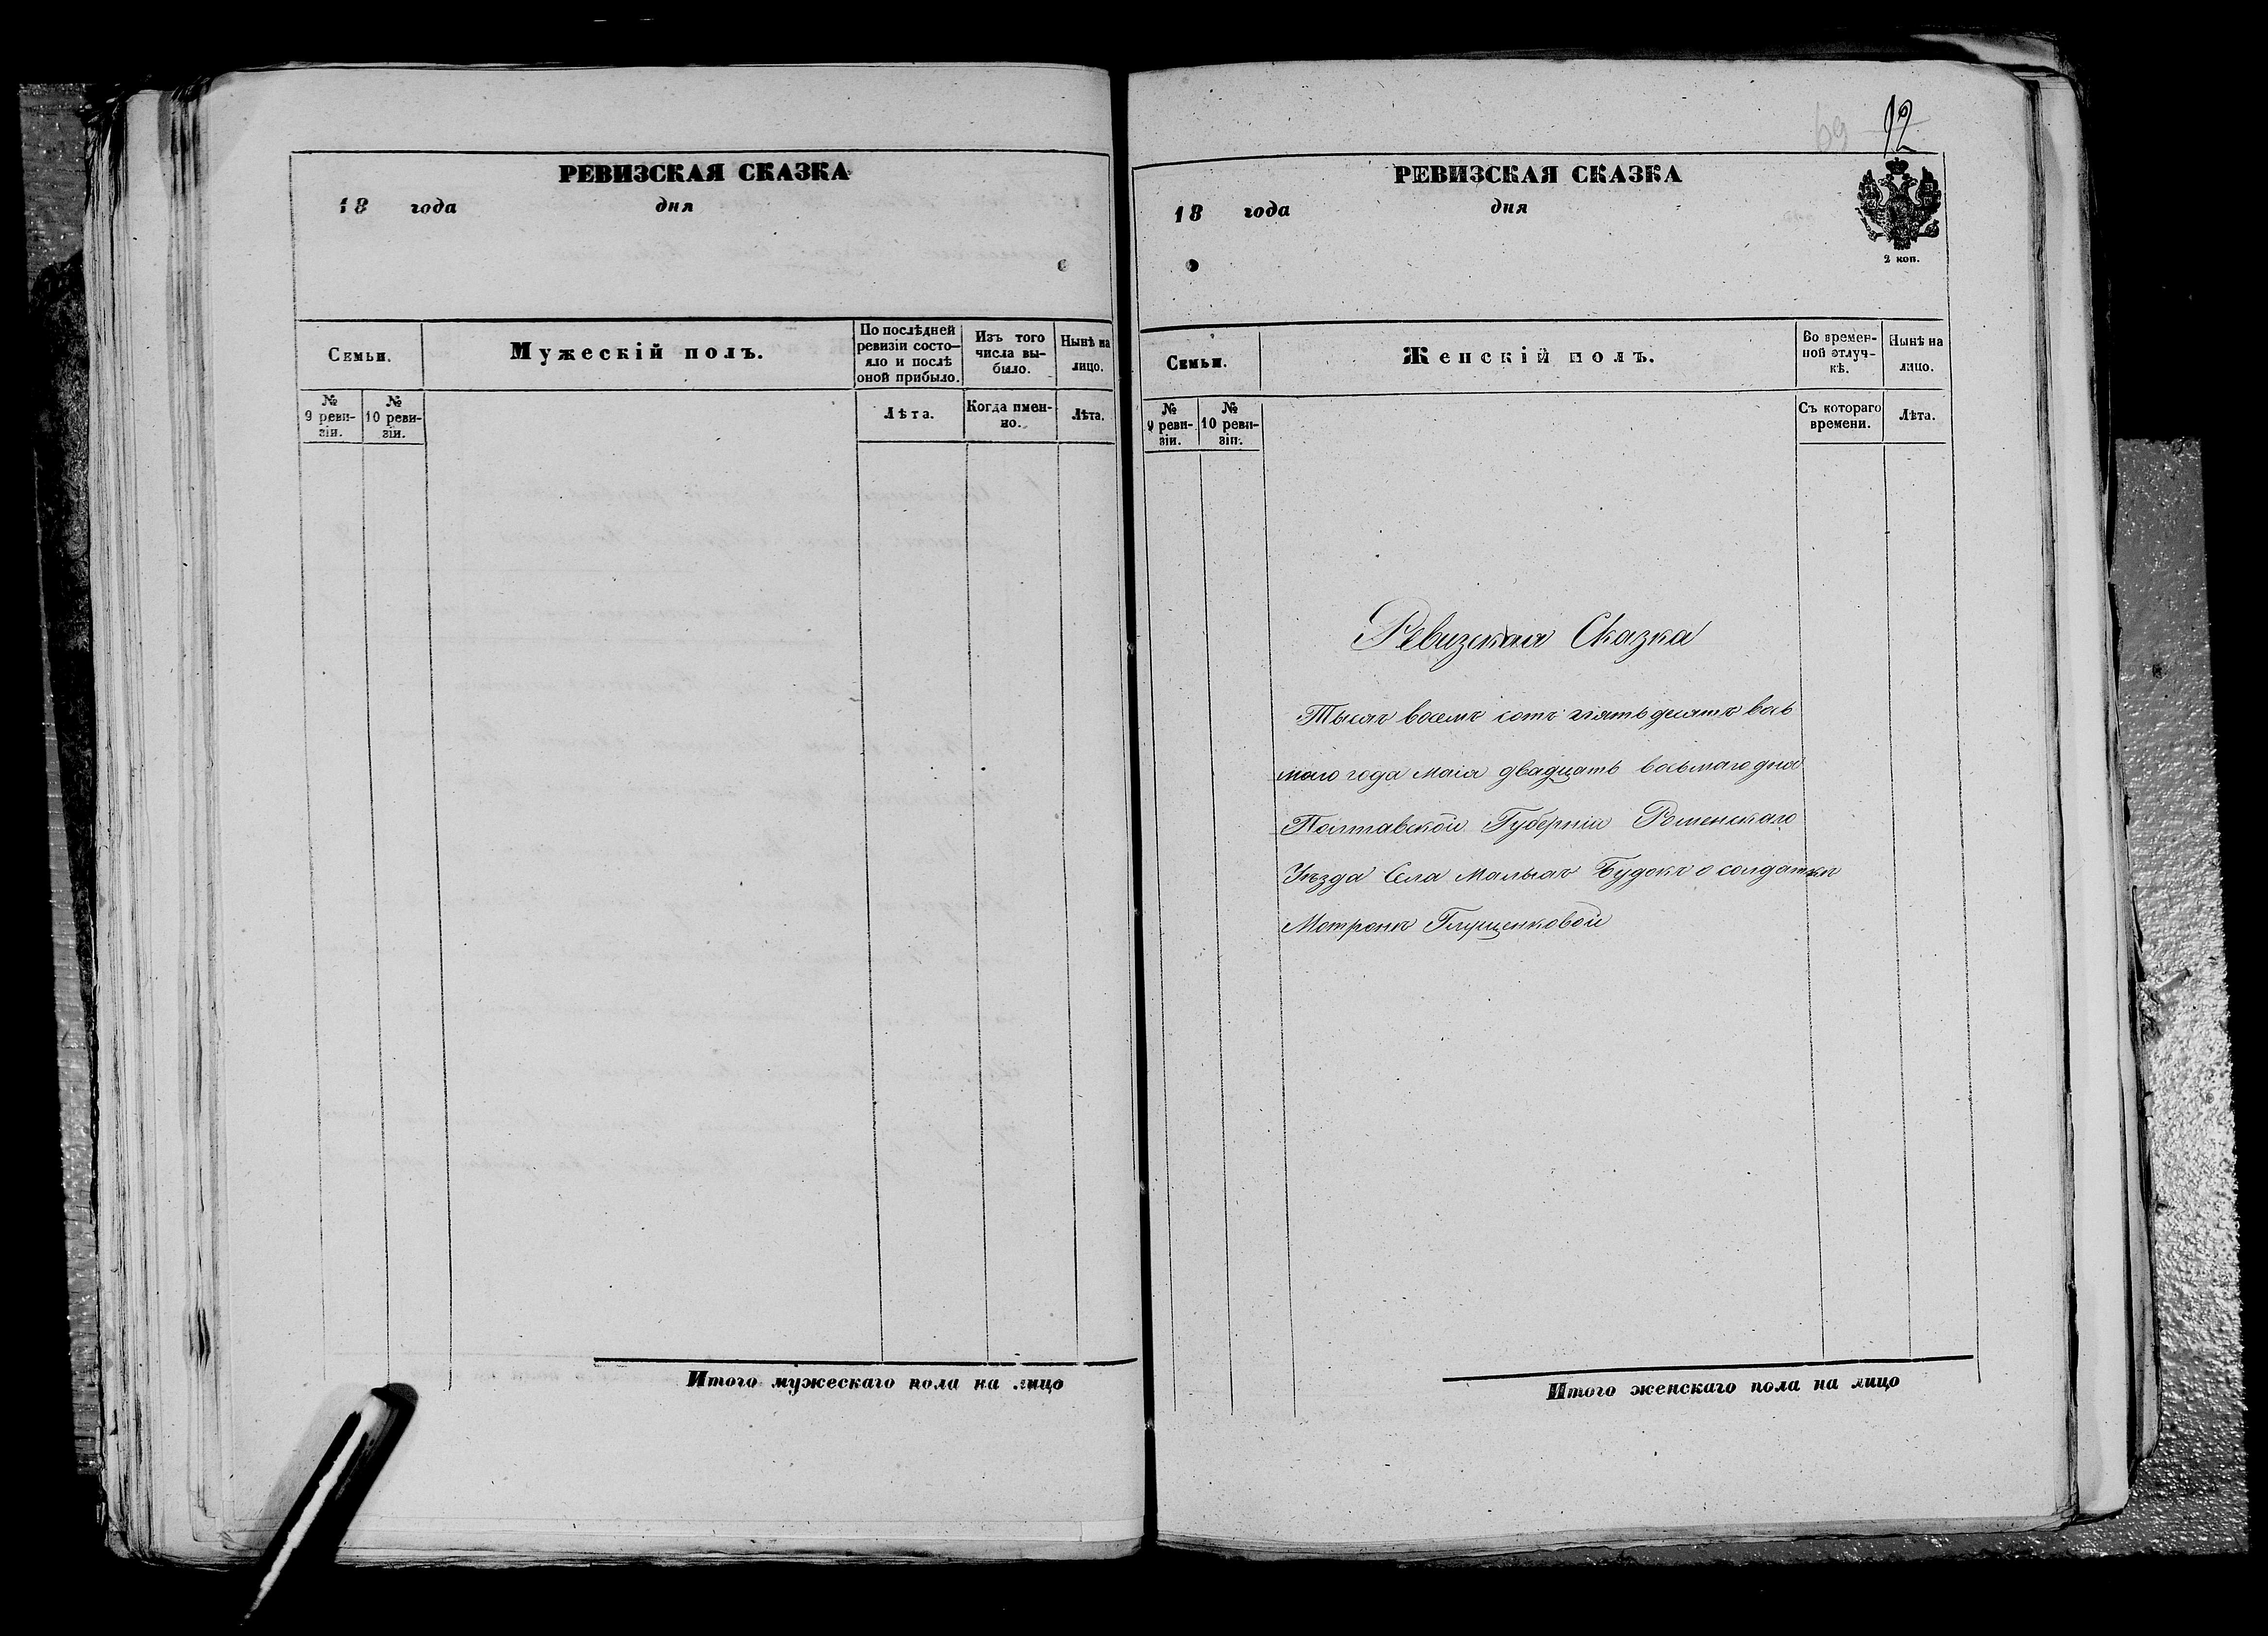 РЕВИЗСКАЯ СКАЗКА
18 года дня
Семьи.
Мужескій полъ.
По послѣдней ревизіи состо-
яло и послѣ оной прибыло.
Изъ того числа вы-
было.
Нынѣ на лицо.
№ 9 реви-
зіи.
№ 10 реви-
зіи.
Лѣта.
Когда имен-
но.
Лѣта.
Итого мужескаго пола на лицо
69 12
РЕВИЗСКАЯ СКАЗКА
18 года дня
2 коп.
Семьи.
Женскій полъ.
Во времен-
ной отлуч-
кѣ.
Нынѣ на лицо.
№ 9 реви-
зіи.
№ 10 реви-
зіи.
Съ котораго времени.
Лѣта.
Ревизская Сказка
Тысяч восемъ сотъ пятьдесятъ вось
маго года маія двадцать восьмаго дня
Полтавской Губерніи Роменскаго
Уѣзда Села Малыхъ Будокъ о солдаткѣ
Мотронѣ Глущенковой
Итого женскаго пола на лицо